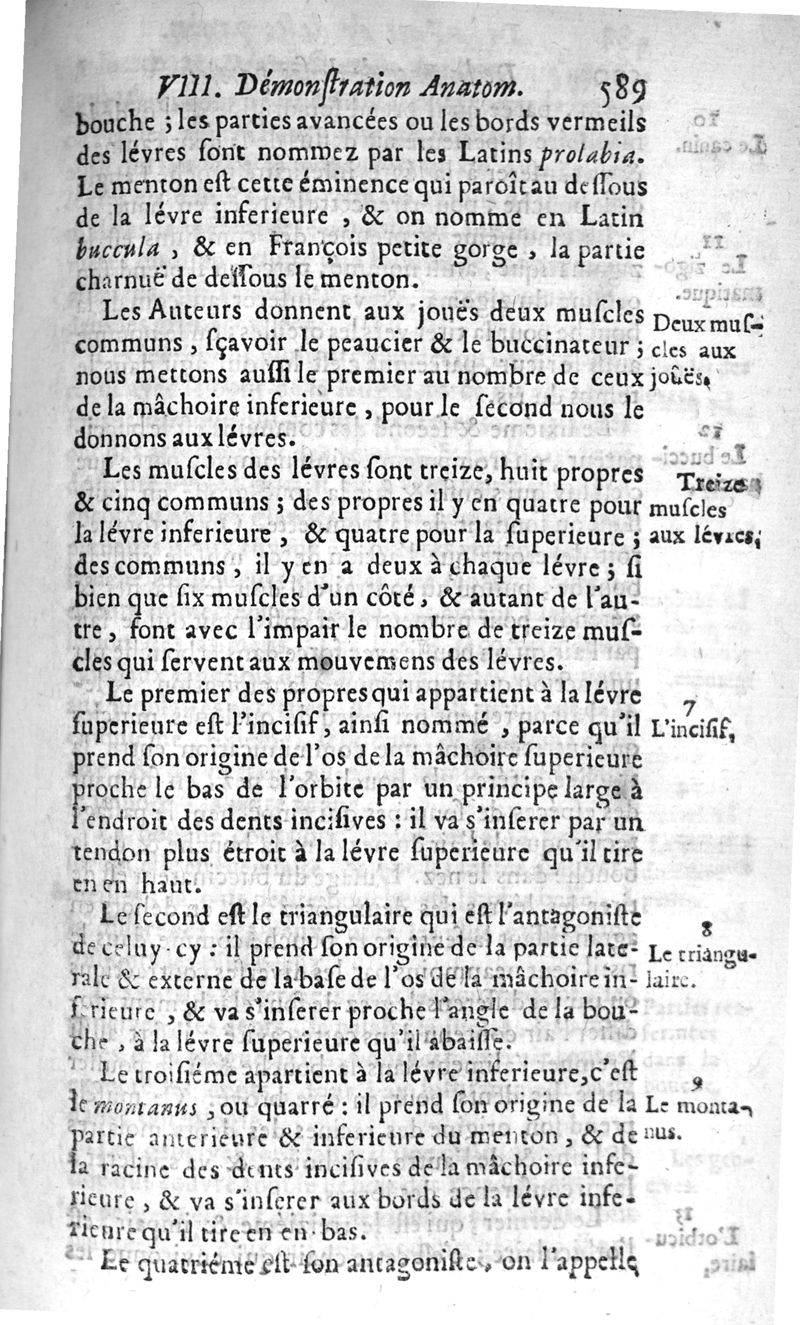 VIII. Démonſtration Anatom. 589
bouche ; les parties avancées ou les bords vermeils
des lévres ſont nommez par les Latins prolabia.
Le menton eſt cette éminence qui paroît au deſſous
de la lévre inferieure , & on nomme en Latin
buccula , & en François petite gorge , la partie
charnuë de deſſous le menton.
Les Auteurs donnent aux jouës deux muſcles
communs , ſçavoir le peaucier & le buccinateur ;
nous mettons auſſi le premier au nombre de ceux
de la mâchoire inferieure , pour le ſecond nous le
donnons aux lévres.
Deux muſ-
cles aux
joüës.
Les muſcles des lévres ſont treize, huit propres
& cinq communs ; des propres il y en quatre pour
la lévre inferieure , & quatre pour la ſuperieure ;
des communs , il y en a deux à chaque lévre ; ſi
bien que ſix muſcles d'un côté, & autant de l'au-
tre, font avec l'impair le nombre de treize muſ-
cles qui ſervent aux mouvemens des lévres.
Treize
muſcles
aux lévres.
Le premier des propres qui appartient à la lévre
ſuperieure eſt l'inciſif, ainſi nommé , parce qu'il
prend ſon origine de l'os de la mâchoire ſuperieure
proche le bas de l'orbite par un principe large à
l'endroit des dents inciſives : il va s'inſerer par un
tendon plus étroit à la lévre ſuperieure qu'il tire
en en haut.
7
L'inciſif,
Le ſecond eſt le triangulaire qui eſt l'antagoniſte
de celuy-cy : il prend ſon origine de la partie late-
rale & externe de la baſe de l'os de la mâchoire in-
ferieure , & va s'inſerer proche l'angle de la bou-
che , à la lévre ſuperieure qu'il abaiſſe.
8
Le triangu-
laire.
Le troiſiéme apartient à la lévre inferieure, c'eſt
le montanus , ou quarré : il prend ſon origine de la
partie anterieure & inferieure du menton , & de
la racine des dents inciſives de la mâchoire infe-
rieure , & va s'inſerer aux bords de la lévre infe-
rieure qu'il tire en en bas.
9
Le monta-
nus.
Le quatriéme eſt ſon antagoniſte, on l'appelle